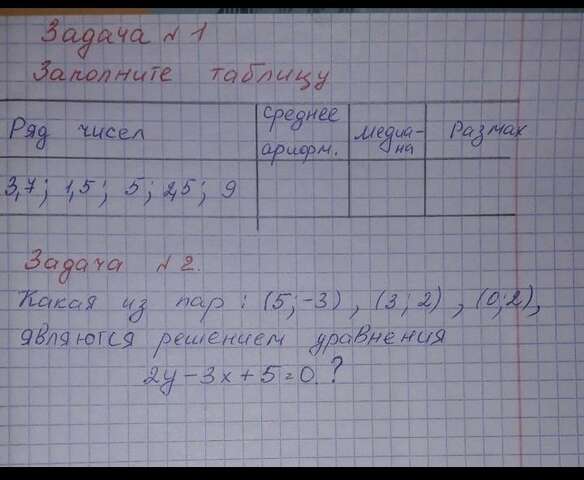 Задача №1
Заполните таблицу
Ряд чисел
среднее
арифм.
медиа-
на
Размах
3,7; 1,5; 5; 2,5; 9
Задача №2.
Какая из пар: (5;-3), (3;2), (0;2),
являются решением уравнения
2у-3х+5=0.?